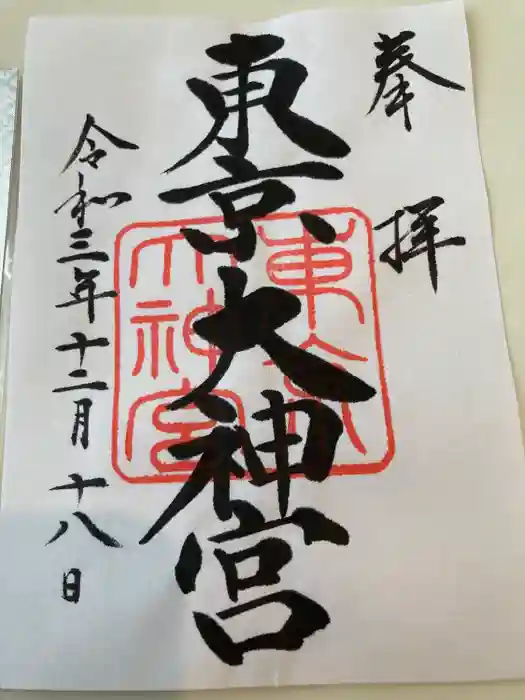 奉拝
東京大神宮
東京
大神宮
令和三年十二月十八日